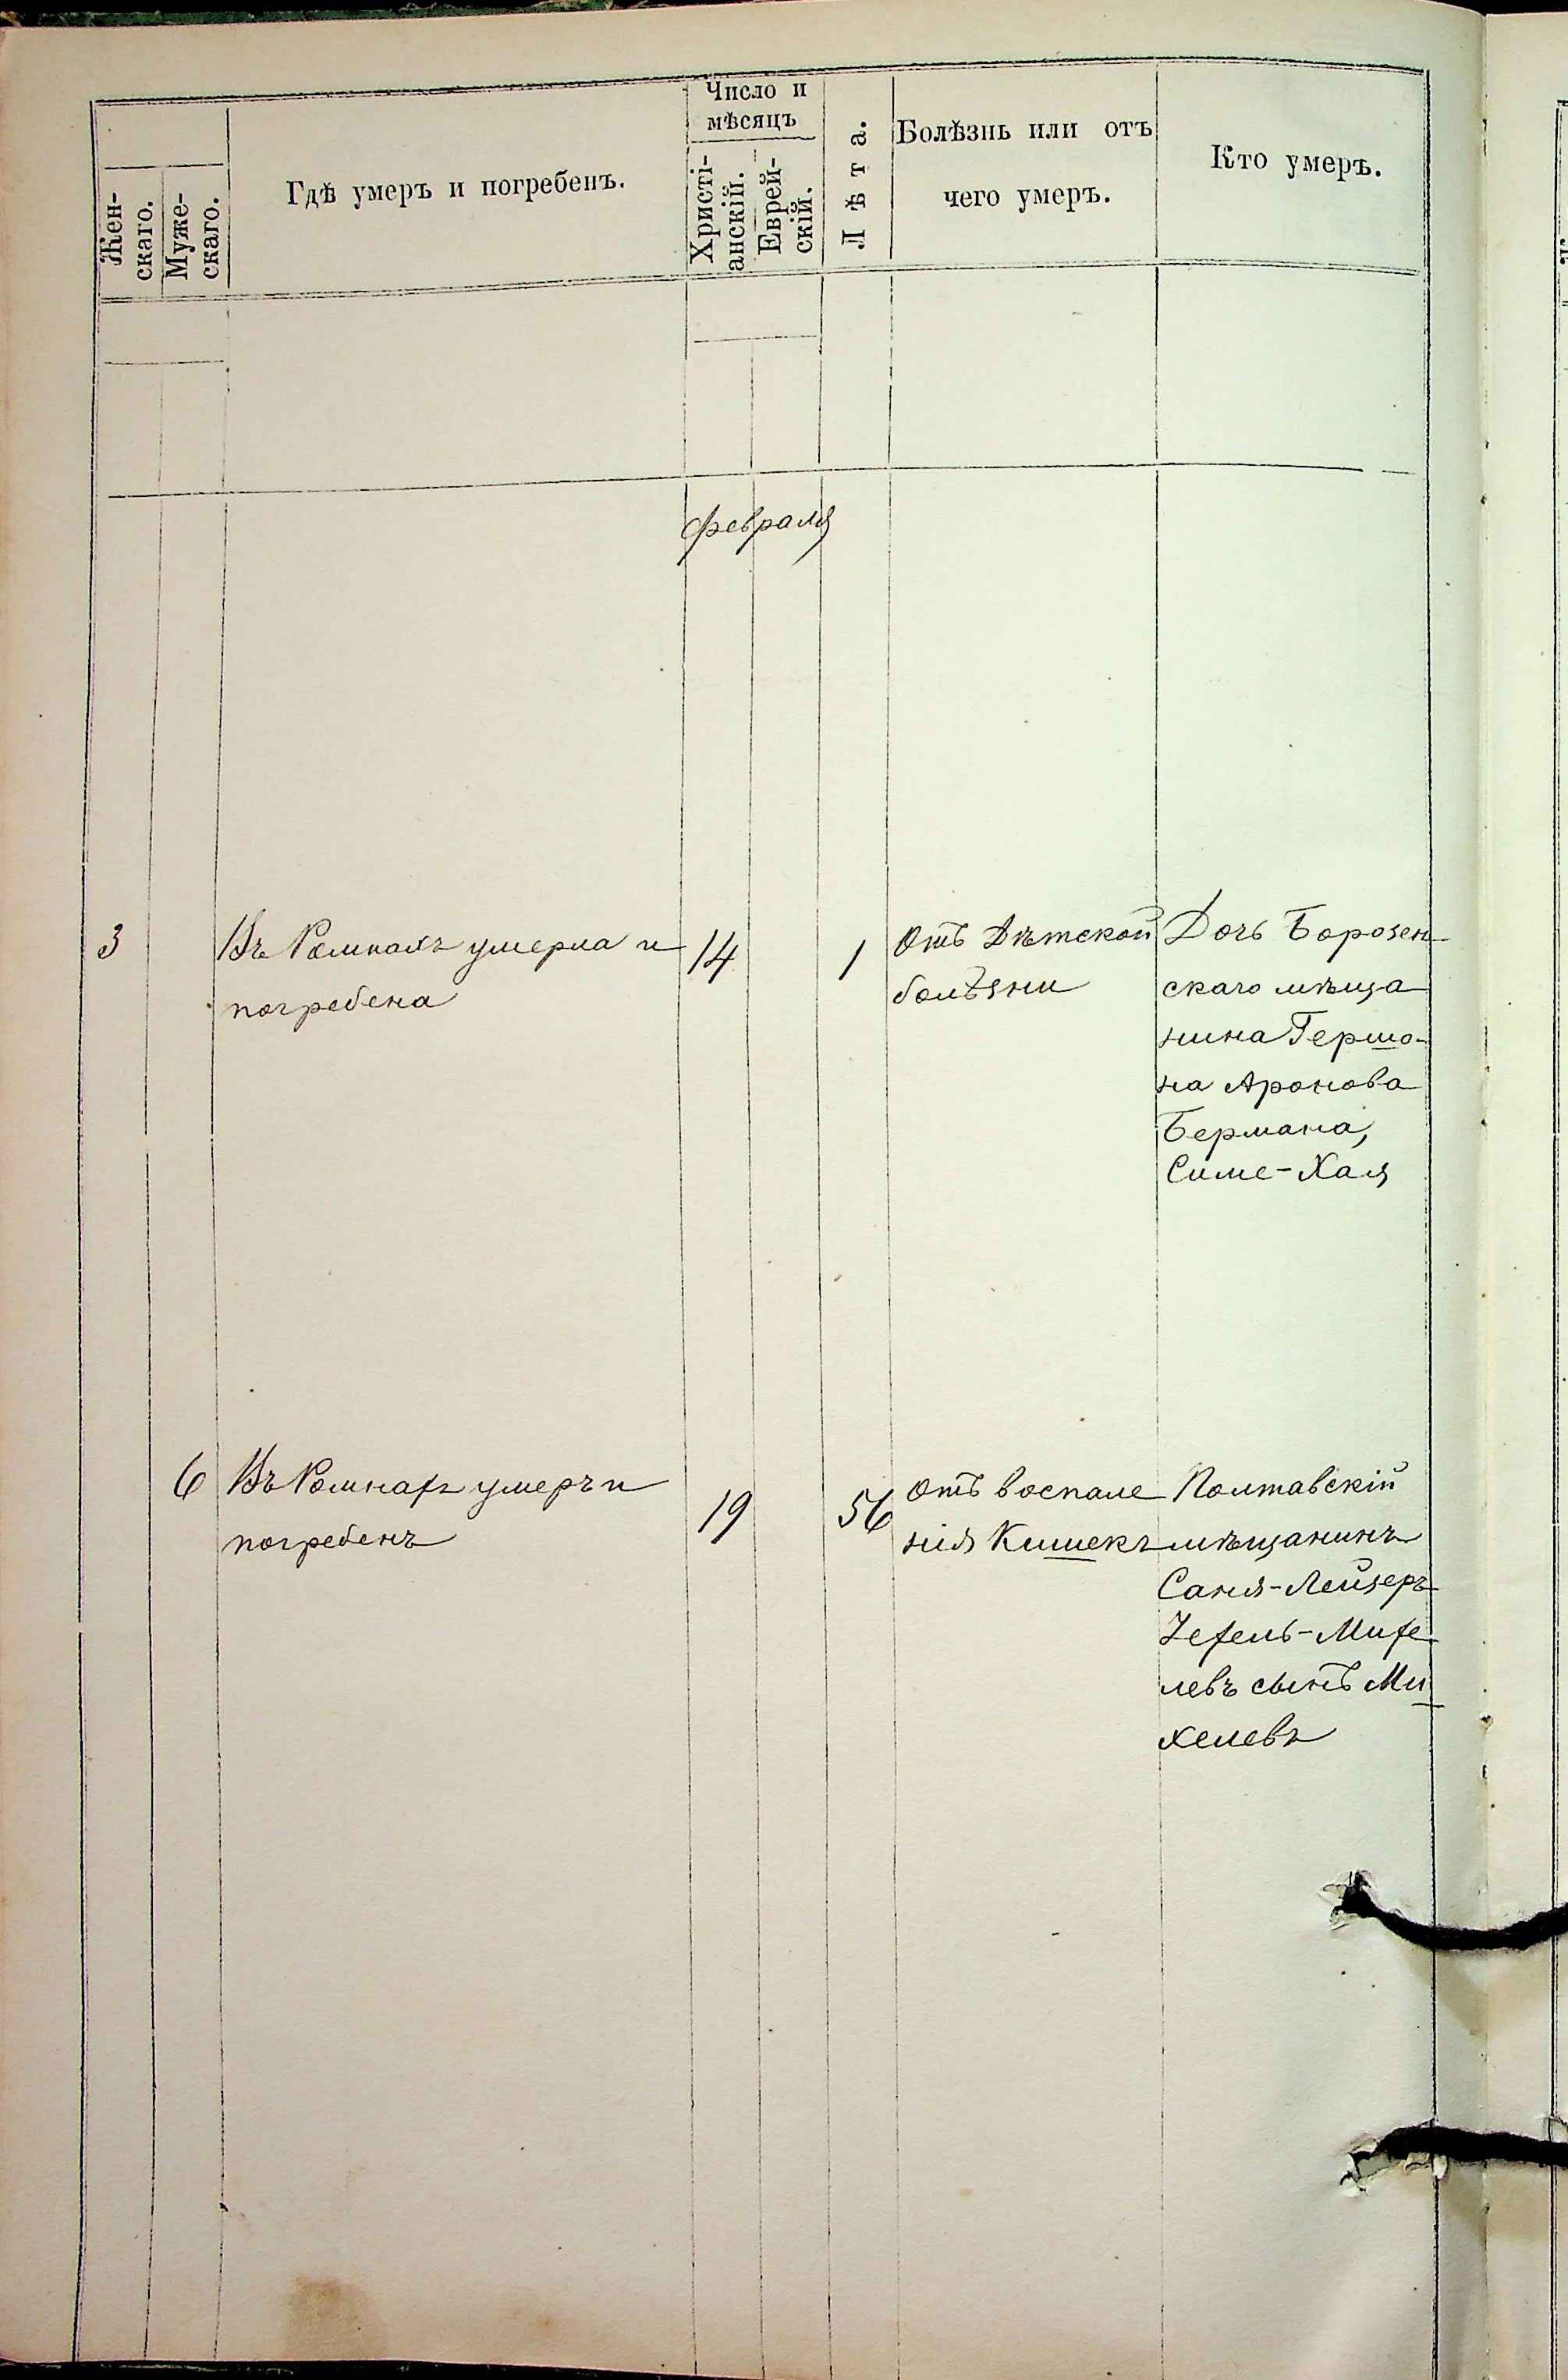 Жен-
скаго.
Муже-
скаго.
Гдѣ умеръ и погребенъ.
Число и
мѣсяцъ
Христі-
анскій.
Еврей-
скій.
Лѣта.
Болѣзнь или отъ
чего умеръ.
Кто умеръ.
Февраля
3
Въ Ромнахъ умерла и
погребена
14
1
Отъ Дѣтской
болѣзни
Дочь Борозен-
скаго мѣща
нина Гершо-
на Аронова
Бермана,
Симе-Хая
6
Въ Ромнахъ умеръ и
погребенъ
19
56
Отъ воспале
нія Кишекъ
Полтавскій
мѣщанинъ
Саня-Лейзеръ
-Михе
левъ сынъ Ми
хелевъ